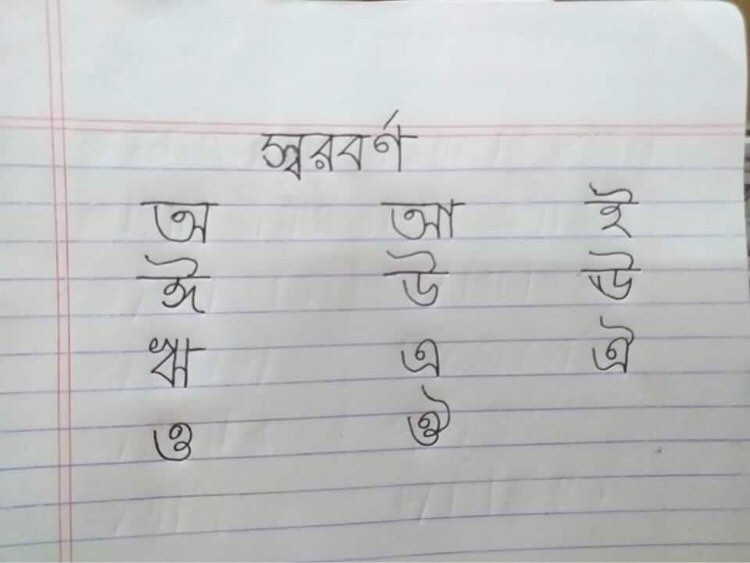 স্বরবর্ণ
অ আ ই
ঈ উ ঊ
ঋ এ ঐ
ও ঔ